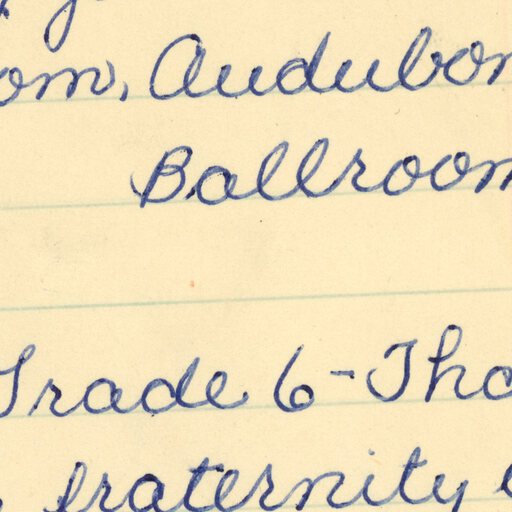 om, Audubon
Ballroom
Grade 6-Tho
fraternity